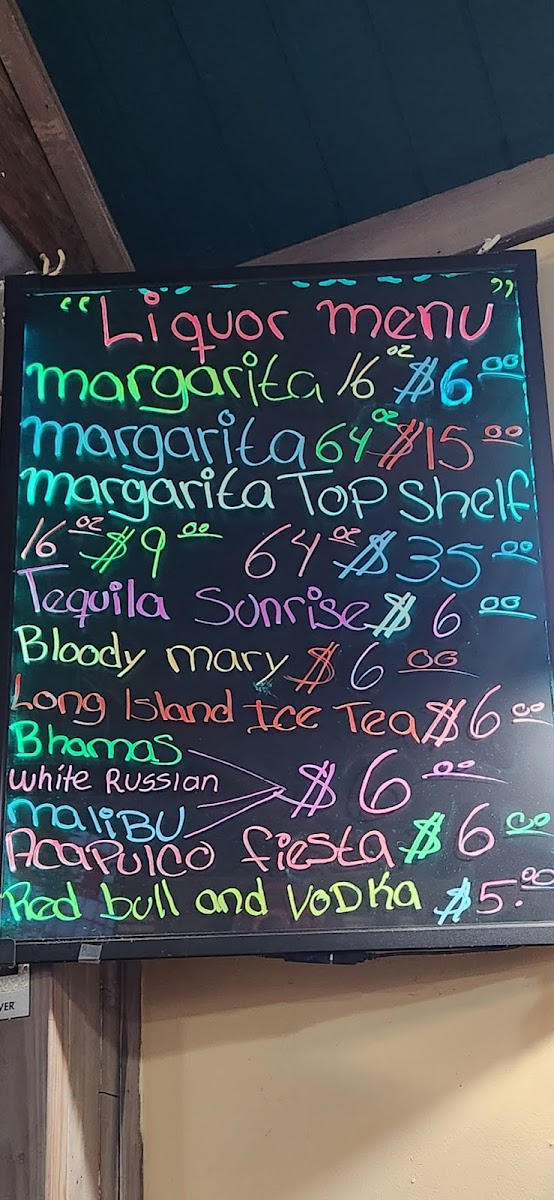 "Liquor menu"
margarita 16 oz $6 00
margarita 64 oz $15 00
margarita Top Shelf
16 oz $9 00 64 oz $35 00
Tequila Sunrise $6 00
Bloody mary $6 00
Long Island Ice Tea $6 00
Bhamas
White Russian $6 00
maliBU
Acapulco fiesta $6 00
Red bull and VODKa $5.00
VER